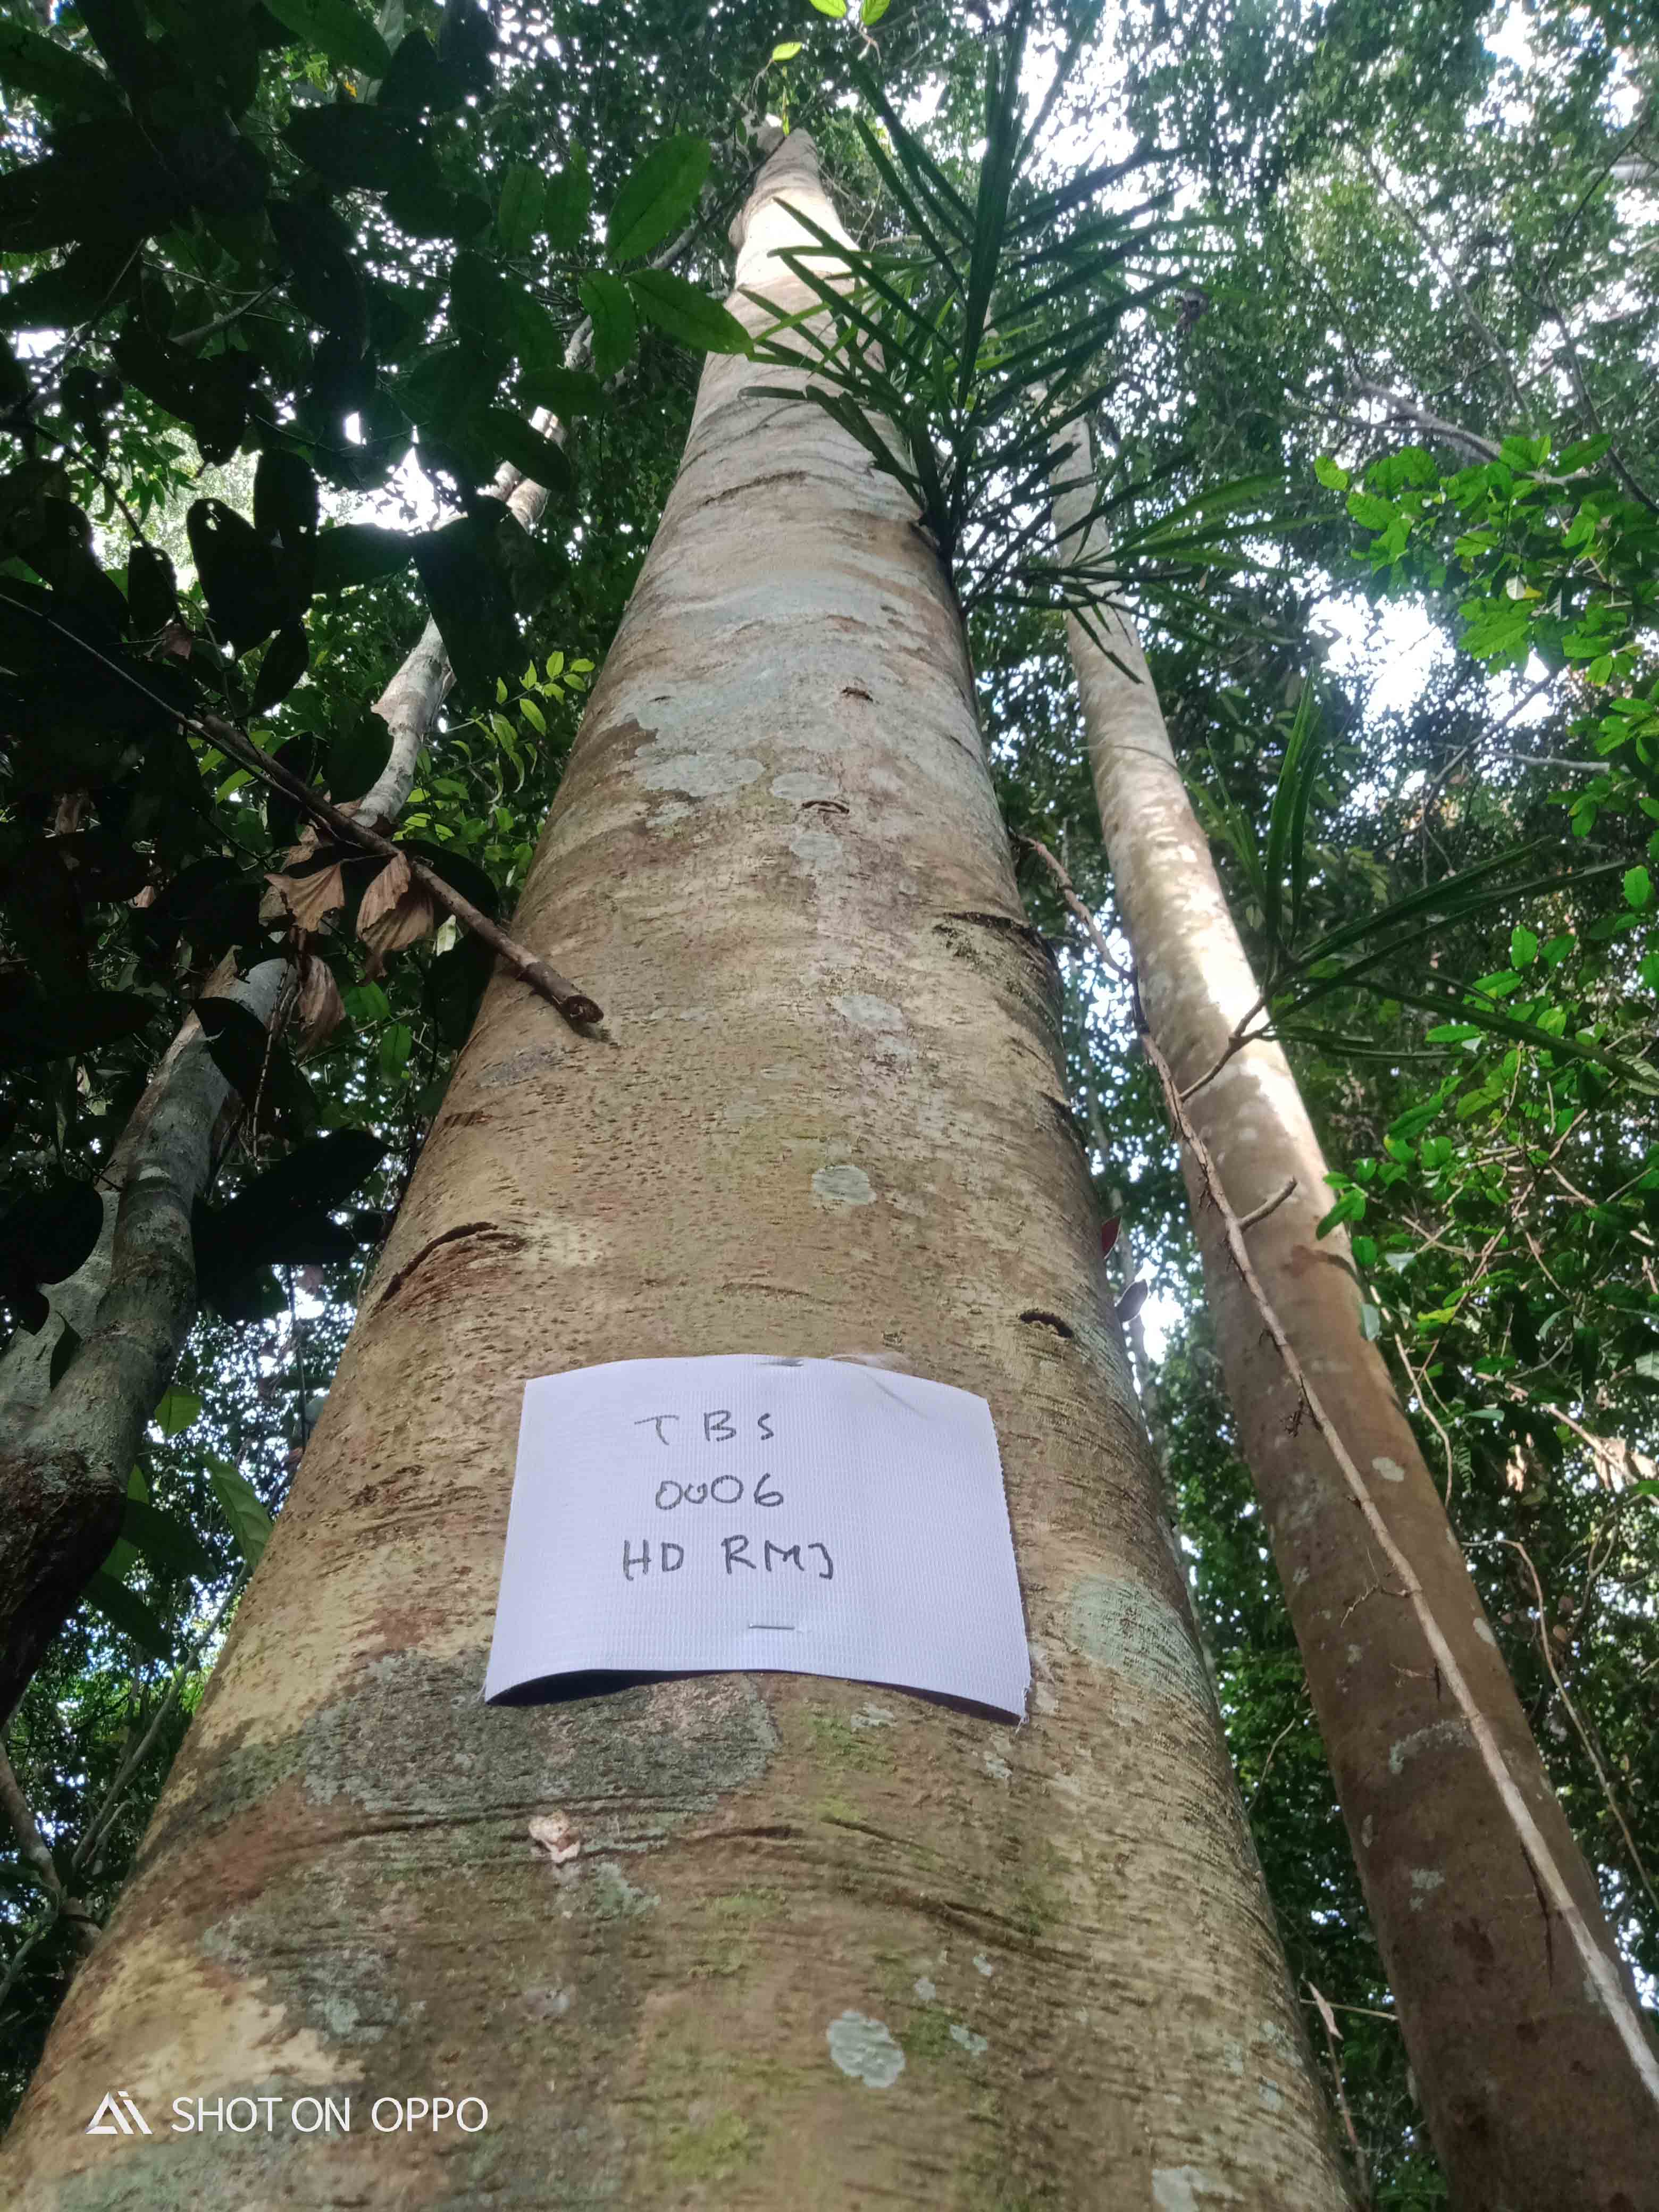 TBS
0006
HD RMJ
SHOT ON OPPO